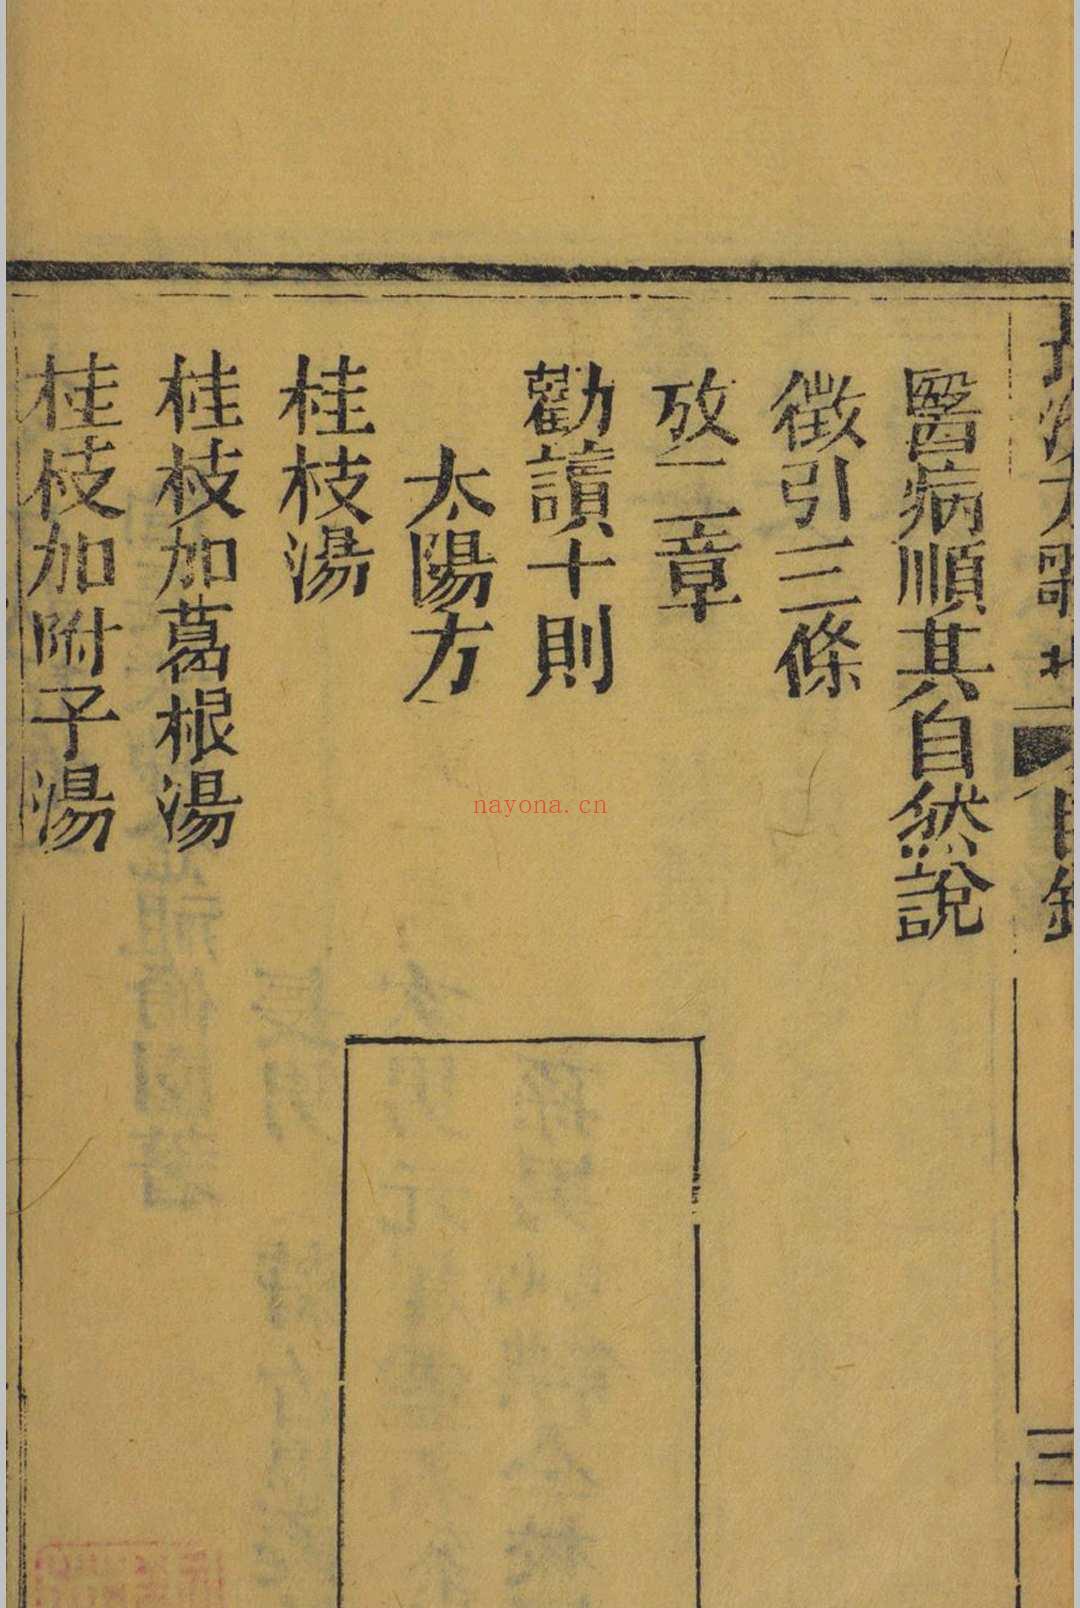 長沙方歌括 目錄
三
醫病順其自然說
徵引三條
攷二章
勸讀十則
太陽方
桂枝湯
桂枝加葛根湯
桂枝加附子湯
nayona.cn